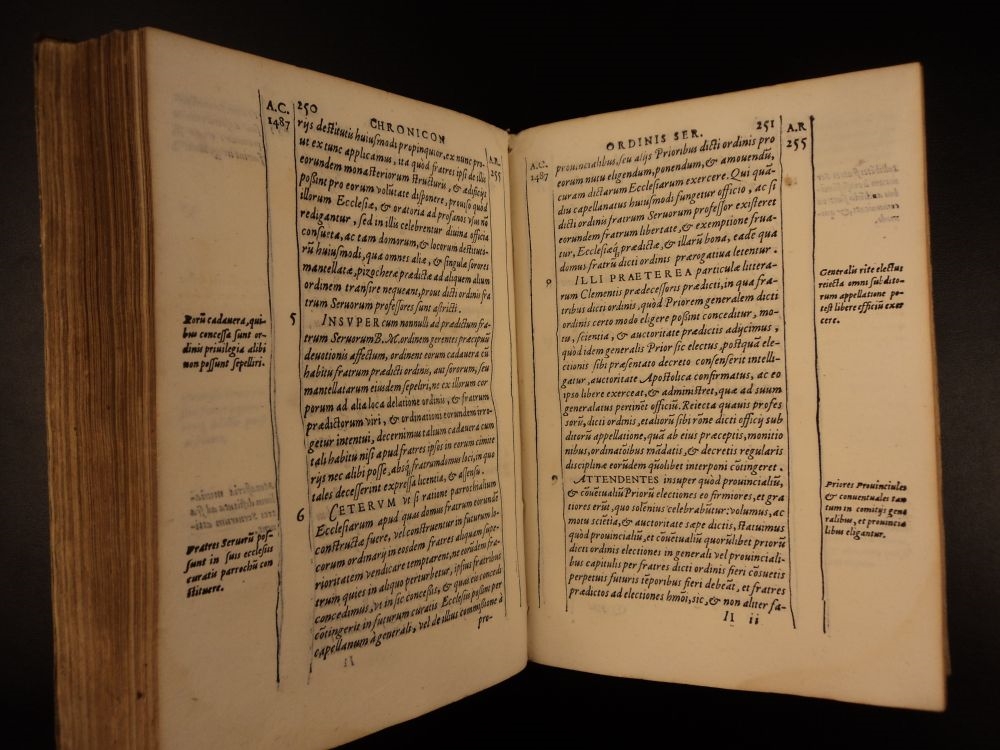 A.C.
1487
250
CHRONICON
A.R.
255
rijs destitutis huiusmodi propinquior, ex nunc pro-
ut ex tunc applicamus, ita quòd fratres ipsi de illis
eorundem monasteriorum structuris, & ædificijs
possint pro eorum volũtate disponere, prouiso quòd
illorum Ecclesiæ, & oratoria ad profanos vsus nõ
redigantur, sed in illis celebrentur diuina officia
consueta, ac tam domorum, & locorum destituto-
rũ huiusmodi, qua omnes aliæ, & singulæ sorores
mantellatæ, pizocheræ prædictæ ad aliquem alium
ordinem transire nequeant, prout dicti ordinis fra
trum Seruorum professores sunt astricti.
5
INSVPER cum nonnulli ad prædictum fra-
trum Seruorum B. M. ordinem gerentes præcipuũ
deuotionis affectum, ordinent eorum cadauera cũ
habitu fratrum prædicti ordinis, aut sororum, seu
mantellatarum eiusdem sepeliri, ne ex illorum cor
porum ad alia loca delatione ordinis, & fratrum
prædictorum viri, & ordinationi eorundem irro-
getur intentui, decernimus talium cadauera cum
tali habitu nisi apud fratres ipsos in eorum cimite
rijs nec alibi posse, absq; fratrum domus loci, in quo
tales decesserint expressa licentia, & assensu.
6
CETERVM vt si ratione parrochialium
Ecclesiarum apud quas domus fratrum eorundẽ
constructæ fuere, vel construentur in futurum lo-
corum ordinarij in eosdem fratres aliquam supe-
rioritatem vendicare temptarent, ne eorũdem fra-
trum quies in aliquo perturbetur, ipsius fratribus
concedimus, vt in sic concessis, & quas eis concedi
cõtingerit in futurum curatis Ecclesijs possint per
capellanum à generali, vel de illius commissione à
pro-
Eorũ cadauera, qui-
bus concessa sunt or-
dinis priuilegia alibi
non possunt sepelliri.
Fratres Seruorũ pos-
sunt in suis ecclesijs
curatis parrochũ con
stituere.
A.C.
1487
ORDINIS SER.
251
A.R
255
prouincialibus, seu alijs Prioribus dicti ordinis pro
eorum nutu eligendum, ponendum, & amouendũ,
curam dictarum Ecclesiarum exercere. Qui qua-
diu capellanatus huiusmodi fungetur officio, ac si
dicti ordinis fratrum Seruorum professor existeret
eorundem fratrum libertate, & exemptione frua-
tur, Ecclesiæq; prædictæ, & illarũ bona, eadẽ qua
domus fratrũ dicti ordinis prærogatiua letentur.
ILLI PRAETEREA particulæ littera-
rum Clementis prædecessoris prædicti, in qua fra-
tribus dicti ordinis, quòd Priorem generalem dicti
ordinis certo modo eligere possint conceditur, mo-
tu, scientia, & auctoritate prædictis adycimus,
quòd idem generalis Prior sic electus, postquã ele-
ctionis sibi præsentato decreto consenserit intelli-
gatur, auctoritate Apostolica confirmatus, ac eo
ipso libere exerceat, & administret, quæ ad suum
generalatus pertinẽt officiũ. Reiecta quauis profes
sorũ, dicti ordinis, et aliorũ sibi rõne dicti officij sub
ditorũ appellatione, quã ab eius præceptis, monitio
nibus, ordinatõibus mãdatis, & decretis regularis
disciplinæ eorũdem quõlibet interponi cõtingeret.
ATTENDENTES insuper quod prouincialiũ,
& cõuẽtualiũ Priorũ electiones eo firmiores, et gra
tiores erũt, quo solenius celebrabũtur: volumus, ac
motu sciẽtia, & auctoritate sæpe dictis, statuimus
quòd prouincialiũ, et cõuẽtualiũ quorũlibet priorũ
dicti ordinis electiones in generali vel prouinciali-
bus capitulis per fratres dicti ordinis fieri cõsuetis
perpetuis futuris tẽporibus fieri debeãt, et fratres
prædictos ad electiones hmõi, sic, & non aliter fa-
Il ii
Generalis rite electus
reiecta omni subdito-
rum appellatione po-
test libere officiũ exer
cere.
Priores Prouinciales
& conuentuales tan
tum in comitijs gene
ralibus, et prouincia
libus eligantur.